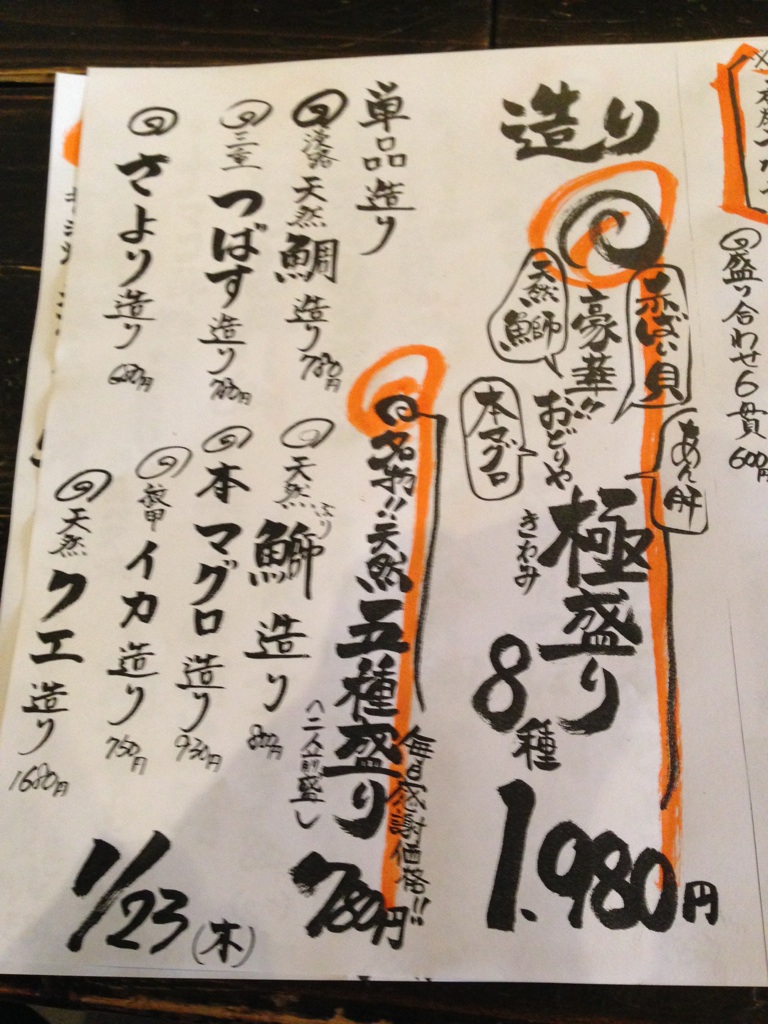 盛り合わせ6貫 600円
造り
豪華!! おどりや
極盛り
きわみ
8種
1.980円
赤ばい貝
あん肝
天然鰤
本マグロ
名物!!天然五種盛り
〈二人前盛し
毎日感謝価格!!
780円
単品造り
淡路 天然鯛造り 780円
三重 つばす造り 780円
さより造り 680円
天然 鰤造り 800円
ぶり
本マグロ造り 930円
紋甲 イカ造り 750円
天然 クエ造り 1680円
1/23(木)